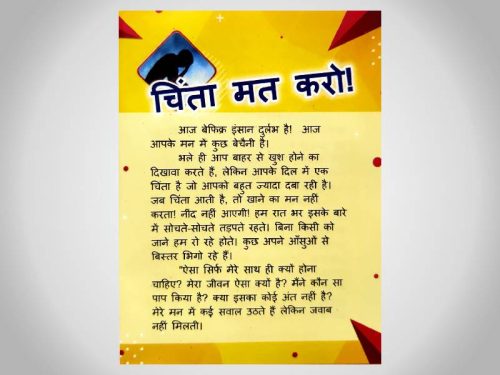 चिंता मत करो!
आज बेफिक्र इंसान दुर्लभ है! आज
आपके मन में कुछ बेचैनी है।
भले ही आप बाहर से खुश होने का
दिखावा करते हैं, लेकिन आपके दिल में एक
चिंता है जो आपको बहुत ज्यादा दबा रही है।
जब चिंता आती है, तो खाने का मन नहीं
करता! नींद नहीं आएगी! हम रात भर इसके बारे
में सोचते-सोचते तड़पते रहते। बिना किसी को
जाने हम रो रहे होते। कुछ अपने आँसुओं से
बिस्तर भिगो रहे हैं।
"ऐसा सिर्फ मेरे साथ ही क्यों होना
चाहिए? मेरा जीवन ऐसा क्यों है? मैंने कौन सा
पाप किया है? क्या इसका कोई अंत नहीं है?
मेरे मन में कई सवाल उठते हैं लेकिन जवाब
नहीं मिलती।